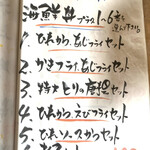 海鮮丼 プラス¥1,6も
選べます
1. ひれかつ、あじフライセット
2. かきフライ、あじフライセット
3. 特大とりの唐揚セット
4. ひれかつ、えびフライセット
5. ひれソースかつセット